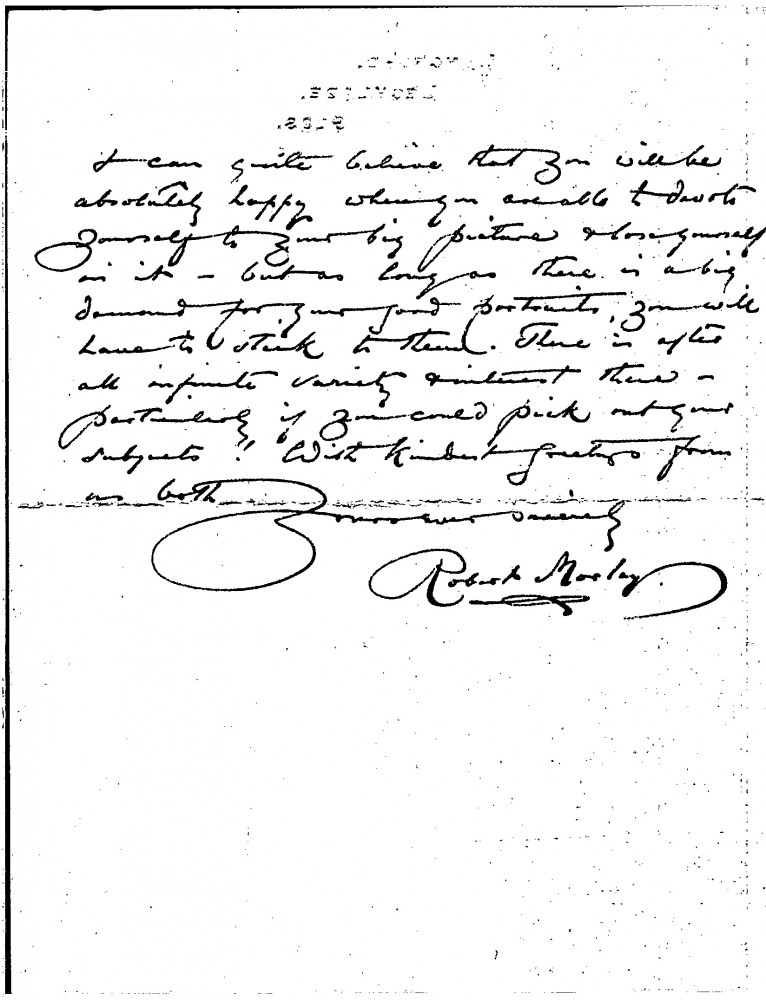 I can quite believe that you will be
absolutely happy when you are able to devote
yourself to your big picture & lose yourself
in it – but as long as there is a big
demand for your good portraits, you will
have to stick to them. There is after
all infinite variety & interest there –
particularly if you could pick out your
subjects! With kindest greetings from
us both
Yours ever sincerely
Robert Morley.